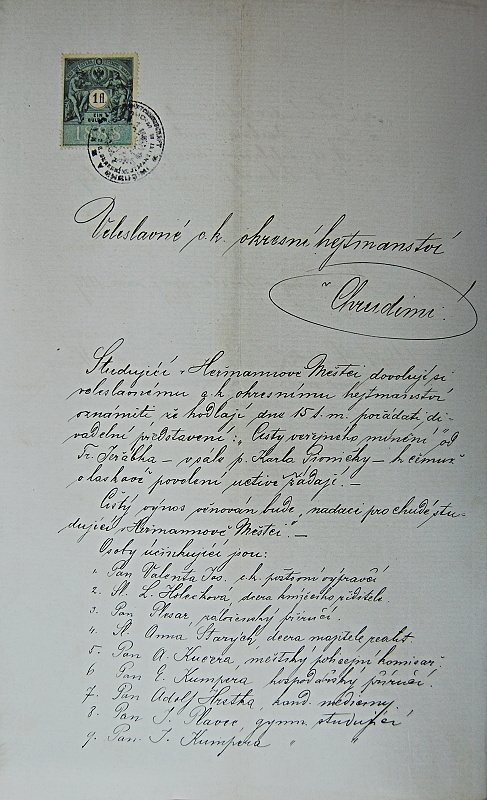 1 fl
EIN
GULDEN
Veleslavné c.k. okresní hejtmanství
v Chrudimi!
Studující v Heřmannově Městci dovolují si
veleslavnému c.k. okresnímu hejtmanství
oznámiti že hodlají dne 15 t.m. pořádati di-
vadelní představení: „Cesty veřejného mínění" od
Fr. Jeřábka – v sále p. Karla – k čemuž
o laskavé povolení uctivě žádají. –
Čistý výnos věnován bude „nadaci pro chudé stu-
dující v Heřmannově Městci". –
Osoby účinkující jsou:
1. Pan Valenta Jos. c.k. poštovní výpravčí
2. Sl. L. Holečkova, dcera knížecího ředitele.
3. Pan Plesar, záložensky příručí.
4. Sl. Anna dcera majitele realit.
5. Pan A. Kucera, městský policejní komisař.
6 Pan E. Kumpera, hospodářský příručí.
7. Pan Adolf Hřetka, kand. mediciny.
8. Pan J. Plavec, gymn. studující
9. Pan J. Kumpera " "